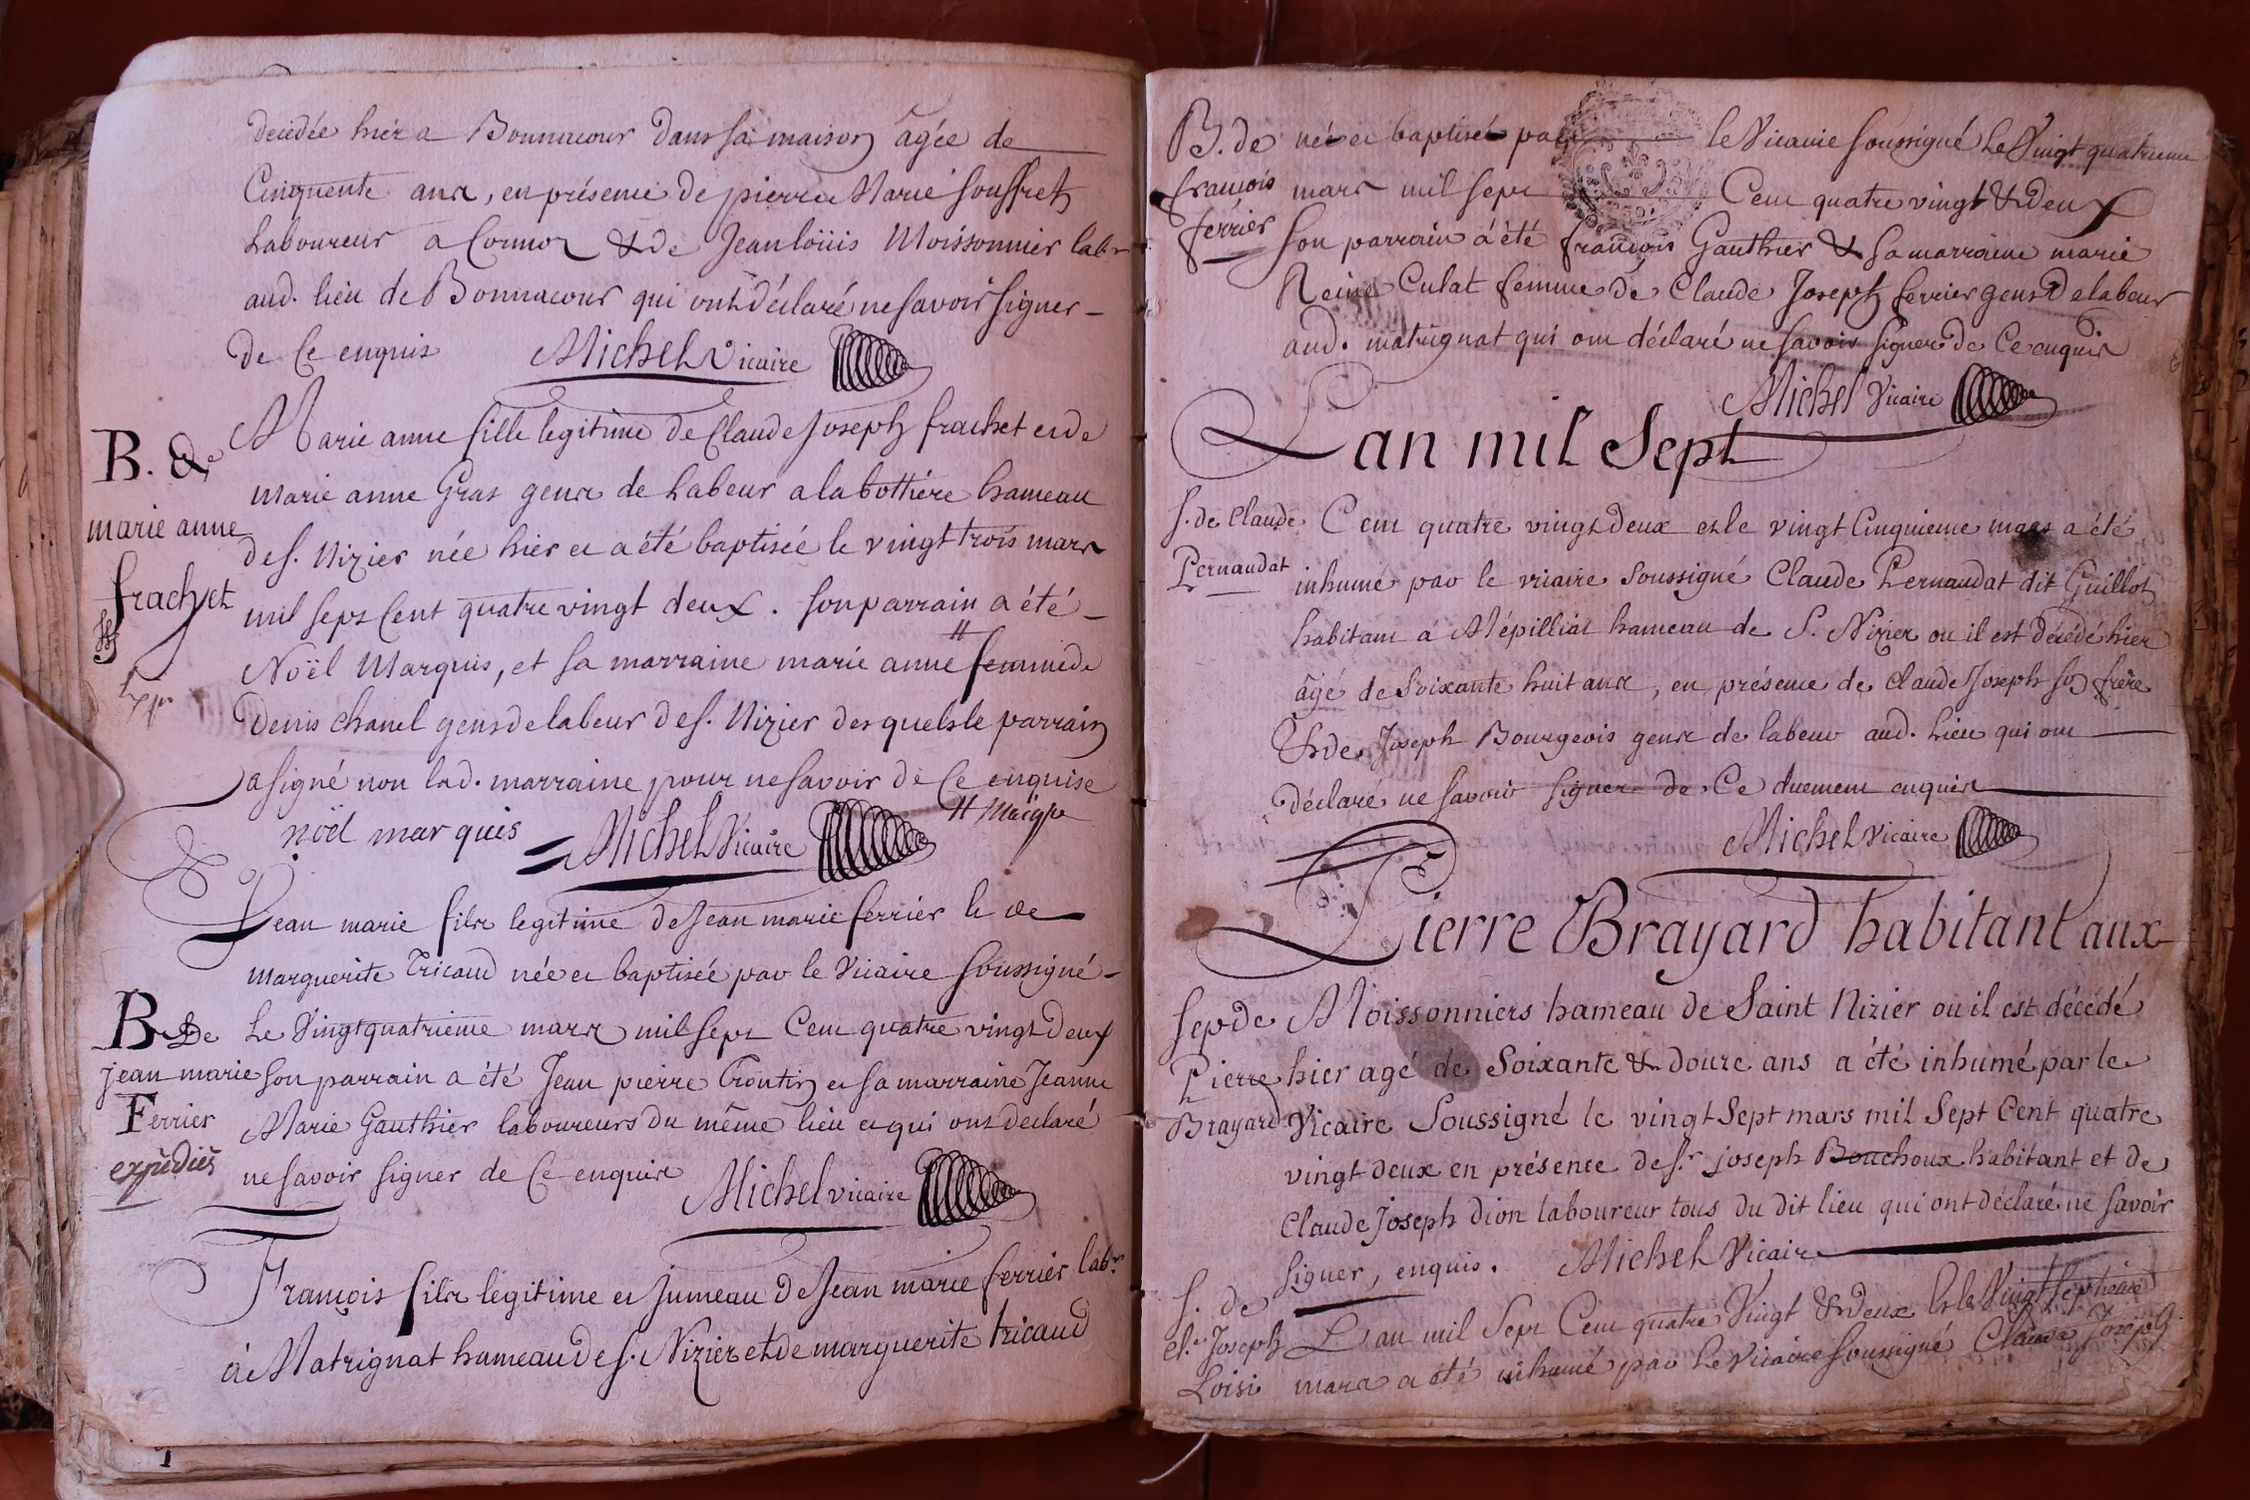 decedée hier a Bonnacour dans sa maison âgée de
Cinquente ans, en présence de pierre Marie souffret
Laboureur a Cormoz & de Jean loüis Moissonnier labr
aud. lieu de Bonnacour qui ont déclaré ne savoir signer
de ce enquis Michel Vicaire
B. de
marie anne
frachet
Marie anne fille legitime de Claude Joseph frachet et de
marie anne Gras gens de labeur a la bottiére hameau
de s. Nizier née hier et a été baptisée le vingt trois mars
mil sept Cent quatre vingt deux. son parrain a été
Noël Marquis, et sa marraine marie anne # femme de
Denis chanel gens de labeur de s. Nizier desquels le parrain
a signé non lad. marraine pour ne savoir de ce enquise
nöel marquis Michel Vicaire #
B de
jean marie
Ferrier
expediés
Jean marie fils legitime de Jean marie ferrier & de
marguerite Tricaud née et baptisée par le Vicaire soussigné
Le Vingt quatrieme mars mil sept Cent quatre vingt deux
son parrain a été Jean pierre et sa marraine Jeanne
Marie Gauthier laboureurs du même lieu et qui ont declaré
ne savoir signer de Ce enquis Michel vicaire
François fils legitime et jumeau de Jean marie ferrier labr.
à Matrignat hameau de s. Nizier et de marguerite tricaud
B. de
françois
ferrier
née et baptisée par le Vicaire soussigné Le Vingt quatrieme
mars mil sept Cent quatre vingt & deux
son parrain a été françois Gauthier & sa marraine marie
Reine Culat femme de Claude Joseph ferrier gens de labeur
aud. matrignat qui ont déclaré ne savoir signer de Ce enquis
Michel Vicaire
L'an mil Sept
s. de Claude
Pernaudat
Cent quatre vingt deux et le vingt Cinquieme mars a été
inhumé par le vicaire soussigné Claude Pernaudat dit Guillot
habitant á Mépilliat hameau de S. Nizier ou il est décédé hier
âgé de Soixante huit ans, en présence de Claude Joseph son frère
& de Joseph Bourgeois gens de labeur aud. Lieu qui ont
déclaré ne savoir signer de Ce duement enquis
Michel vicaire
Pierre Brayard habitant aux
sep de
Pierre
Brayard
Moissonniers hameau de Saint Nizier ou il est décédé
hier agé de Soixante & douze ans a été inhumé par le
Vicaire Soussigné le vingt Sept mars mil Sept Cent quatre
vingt deux en présence de sr. joseph Bouchoux habitant et de
Claude Joseph dion laboureur tous du dit lieu qui ont déclaré ne savoir
signer, enquis. Michel Vicaire
s. de
Cl. Joseph
Loisi
L'an mil Sept Cent quatre Vingt & deux & le Vingt
mars a été inhumé par Le Vicaire soussigné Claude Joseph